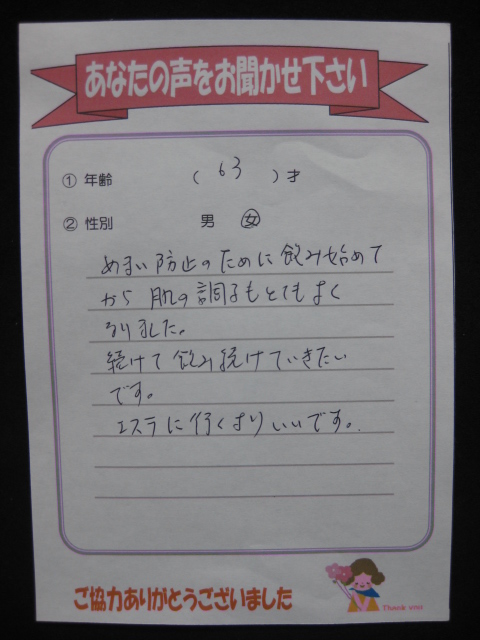 あなたの声をお聞かせ下さい
① 年齢 ( 63 )才
② 性別 男 女
めまい防止のために飲み始めて
から 肌の調子もとてもよく
なりました。
続けて飲み続けていきたい
です。
エステに行くよりいいです。
ご協力ありがとうございました
Thank you!